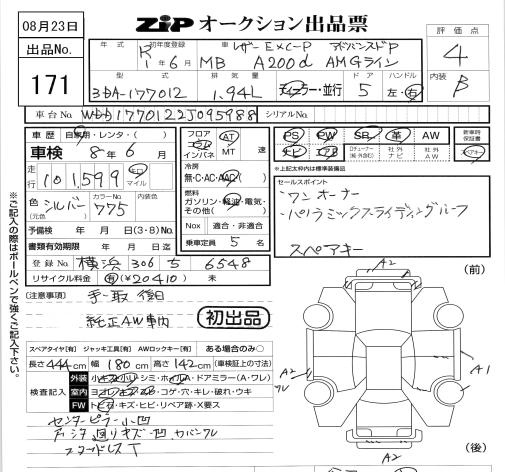 08月23日
ZiP オークション出品票
評価点
4
出品No.
171
年式 初年度登録 車名
R1年6月 MB レザーEXC-P アドバンスドP
A200d AMGライン
内装
B
型式 排気量 ドア ハンドル
3DA-177012 1.94L ディーラー・並行 5 左・右
車台No. WDD1770122J095988 シリアルNo.
車歴 自家用・レンタ( )
車検 8年6月
走行 101,599 キロ マイル
色(元色) シルバー カラーNo. 775 内装色
予備検 年 月 日(3・8)No.
書類有効期限 年 月 日迄
登録No. 横浜 306 5 6548
リサイクル料金 有(¥20410) 未
フロア
コラム
インパネ
AT
MT
速
冷房
無・C・AC・AAC( )
燃料
ガソリン・軽油・電気・
その他( )
Nox 適合・非適合
乗車定員 5 名
PS PW SR 革 AW
ナビ エアB
社外ナビ 社外AW
新車時保証書
スペアキー
※上記太枠内は標準装備品
セールスポイント
・ワンオーナー
・パノラミックスライディングルーフ
スペアキー
(注意事項) 手・取 後日
純正AW車内
初出品
スペアタイヤ[有] ジャッキ工具[有] AWロックキー[有] ある場合のみ○
長さ444cm 幅180cm 高さ142cm (車検証上の寸法)
検査記入
外装 小キズ・小凹・シミ・ホイール・ドアミラー(A・ワレ)
室内 ヨゴレ・キズ・スレ・コゲ・穴・キレ・破れ・ウキ
FW トビ石・キズ・ヒビ・リペア跡・X要ス
センターピラー小凹
スタッドレスT
※ご記入の際はボールペンで強くご記入下さい。
(前)
A2
A2
ワレ
A1
A2
(後)